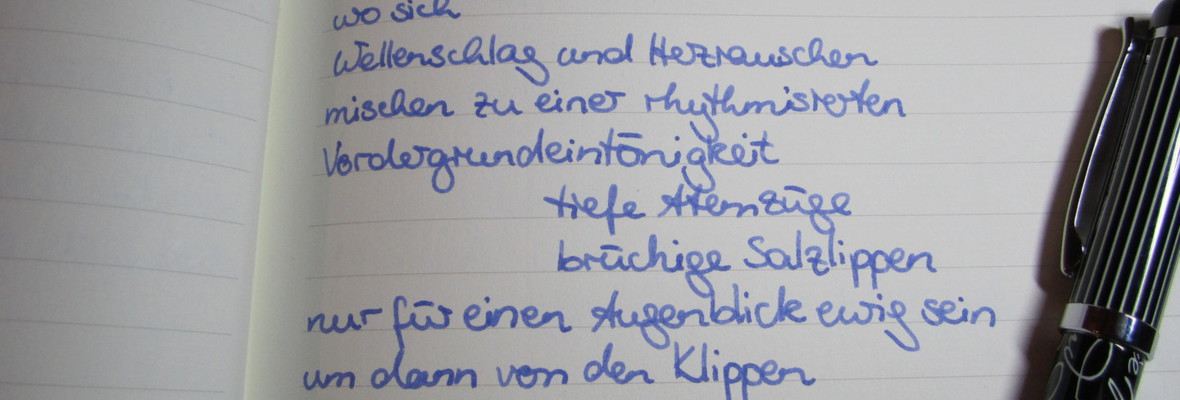 wo sich
Wellenschlag und Herzrauschen
mischen zu einer rhythmisierten
Vordergrundeintönigkeit
tiefe Atemzüge
brüchige Salzlippen
nur für einen Augenblick ewig sein
um dann von den Klippen